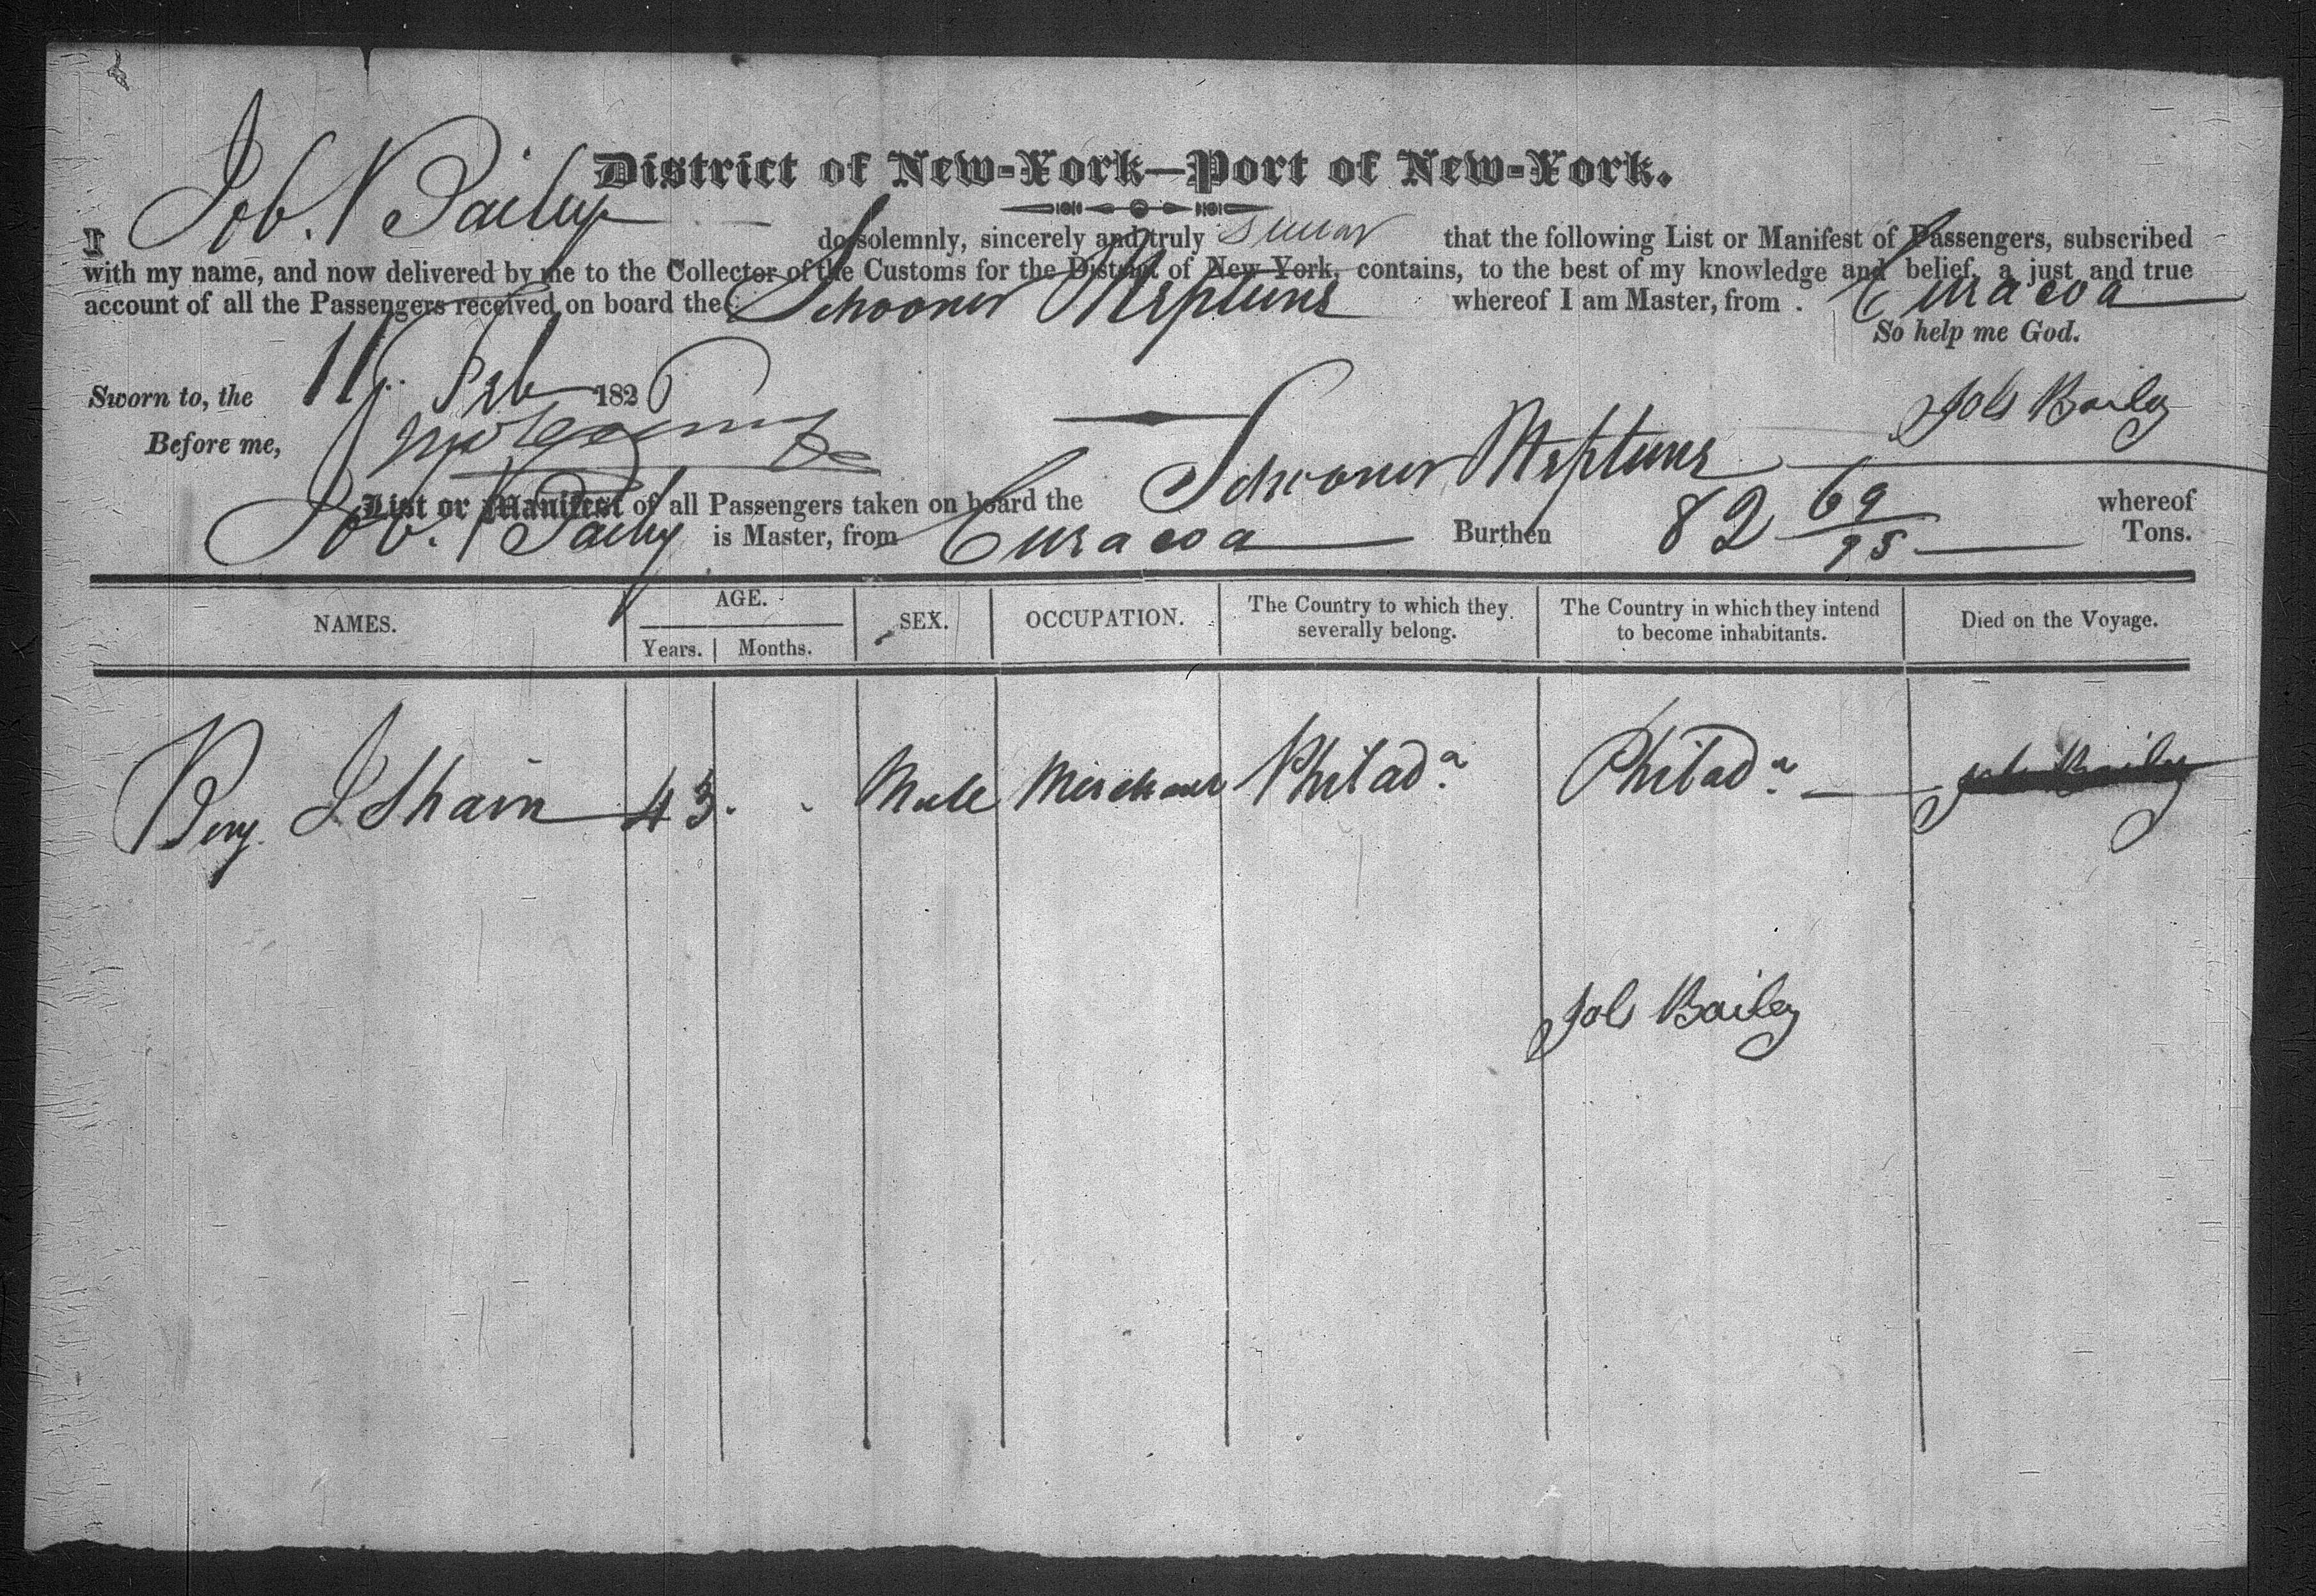 District of New-York—Port of New-York.
I Job. Baily do solemnly, sincerely and truly swear that the following List or Manifest of Passengers, subscribed
with my name, and now delivered by me to the Collector of the Customs for the District of New York, contains, to the best of my knowledge and belief, a just and true
account of all the Passengers received on board the Schooner Neptune whereof I am Master, from Curacoa
So help me God.
Sworn to, the 11 Feb 1826
Job Bailey
Before me,
List or Manifest of all Passengers taken on board the Schooner Neptune whereof
Job. Baily is Master, from Curacoa Burthen 82 69/95 Tons.
NAMES. AGE. Years. Months. SEX. OCCUPATION. The Country to which they severally belong. The Country in which they intend to become inhabitants. Died on the Voyage.
Benj. I Shain 43. Male Merchant Philada Philada Job Bailey
Job Bailey